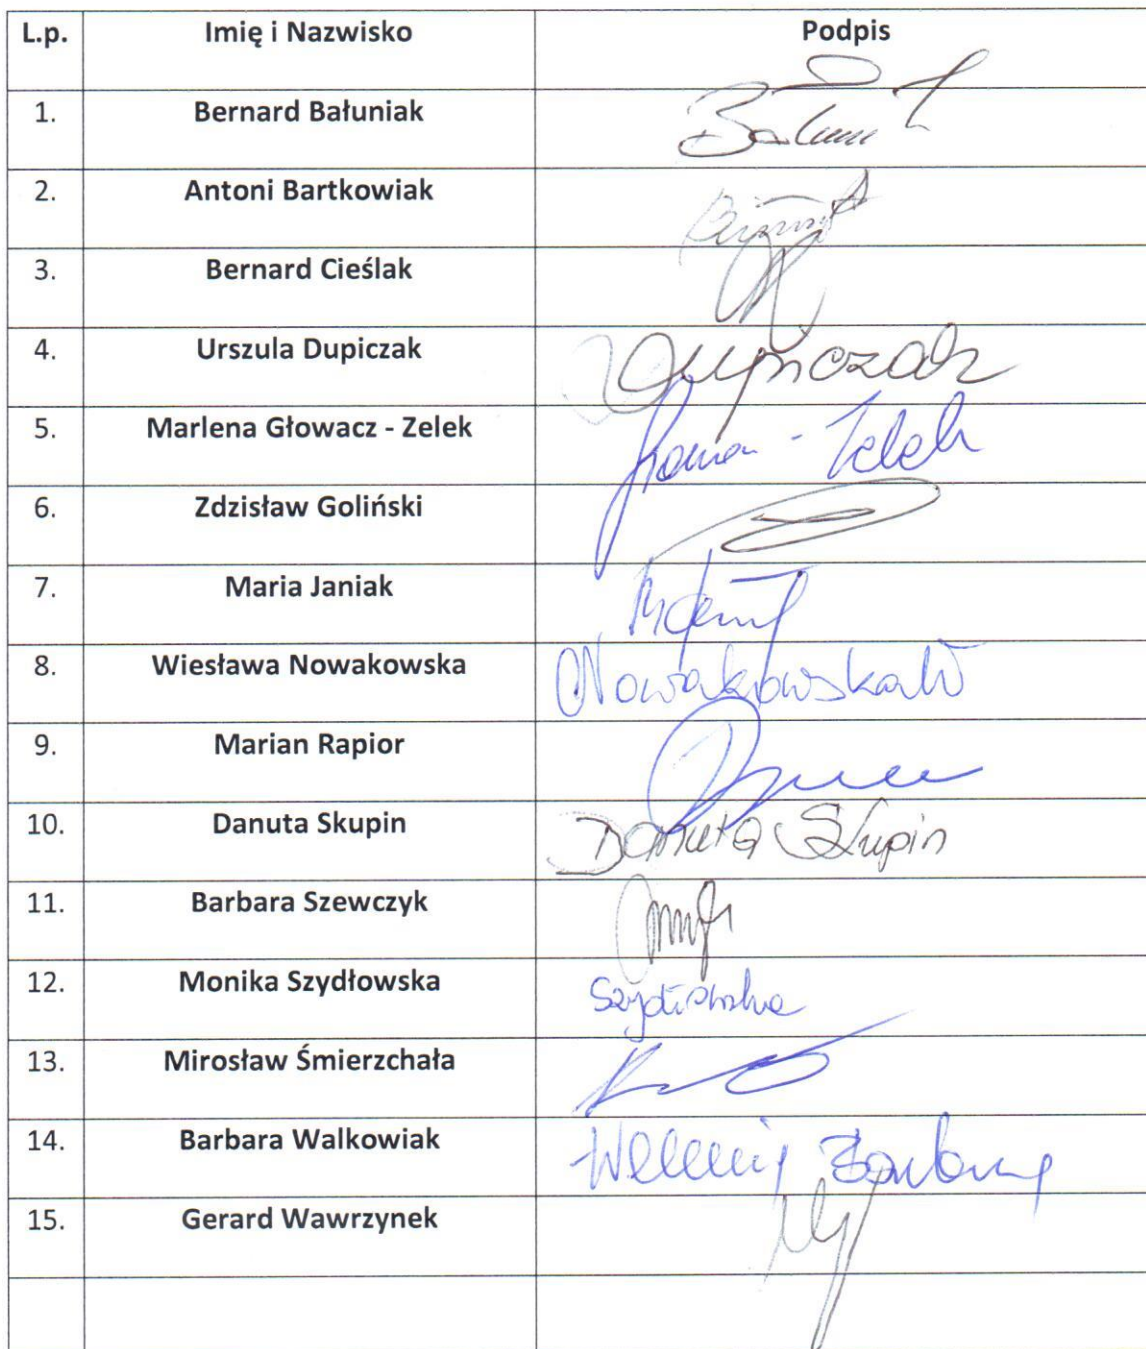 L.p. Imię i Nazwisko Podpis
1. Bernard Bałuniak
2. Antoni Bartkowiak
3. Bernard Cieślak
4. Urszula Dupiczak Dupiczak
5. Marlena Głowacz - Zelek - Zelek
6. Zdzisław Goliński
7. Maria Janiak
8. Wiesława Nowakowska Nowakowska W
9. Marian Rapior
10. Danuta Skupin Danuta Skupin
11. Barbara Szewczyk
12. Monika Szydłowska Szydłowska
13. Mirosław Śmierzchała
14. Barbara Walkowiak
15. Gerard Wawrzynek